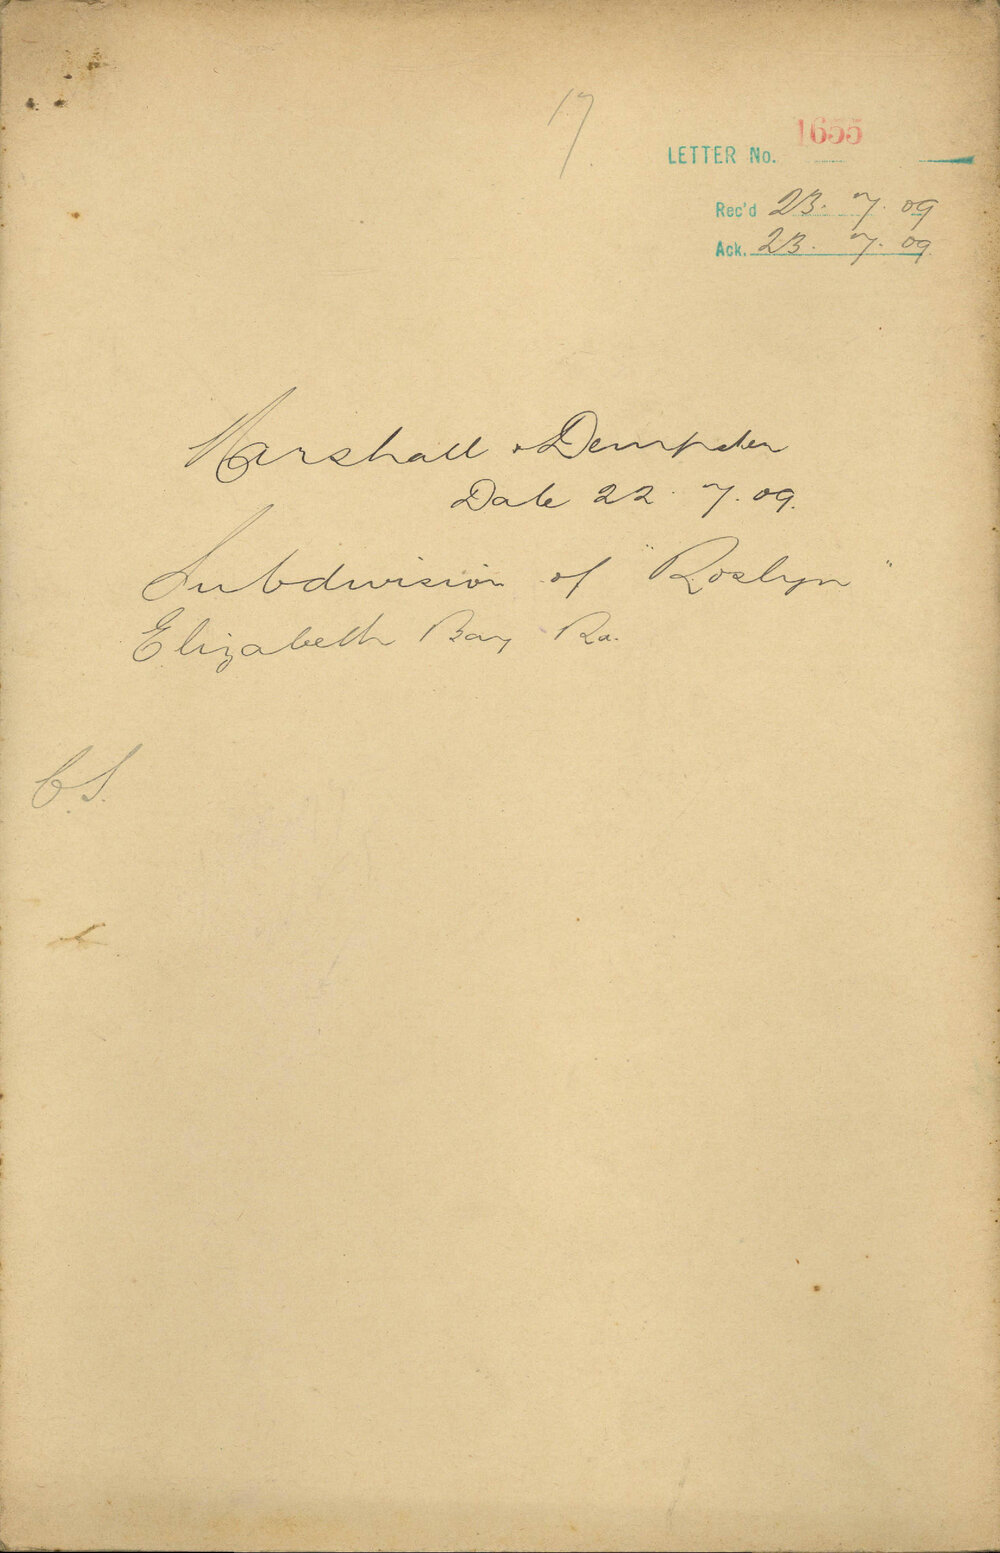 17
LETTER No. 1655
Rec'd 23. 7. 09
Ack. 23. 7. 09
Marshall & Dempster
Date 22. 7. 09.
Subdivision of "Roslyn"
Elizabeth Bay Rd.
C.S.